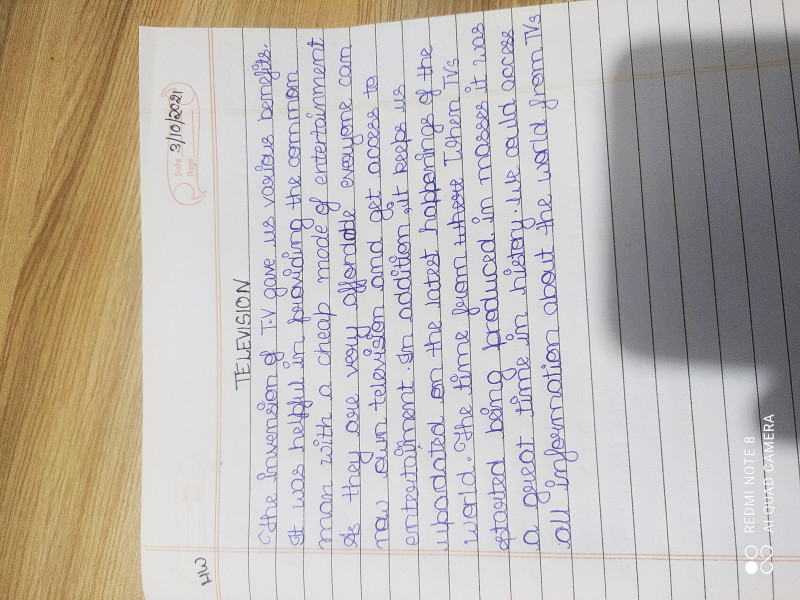 Date 3/10/2021
Page
HW
TELEVISION
The Invension of T.V gave us various benefits.
It was helpful in providing the common
man with a cheap mode of entertainment
As they are very affordable everyone can
now own television and get access to
entertainment. In addition, it keeps us
upardated on the latest happenings of the
world. The time from where When TVs
started being produced in masses it was
a great time in history. We could access
all information about the world from TVs
REDMI NOTE 8
AI QUAD CAMERA